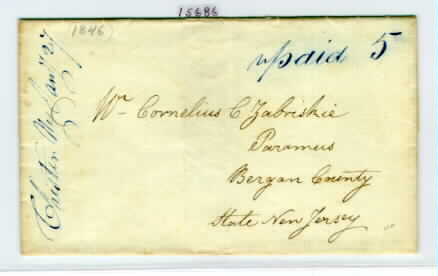 15686
1846)
paid 5
Chester NY Jany 27
Cornelius C Zabriskie
Paramus
Bergan County
State New Jersey